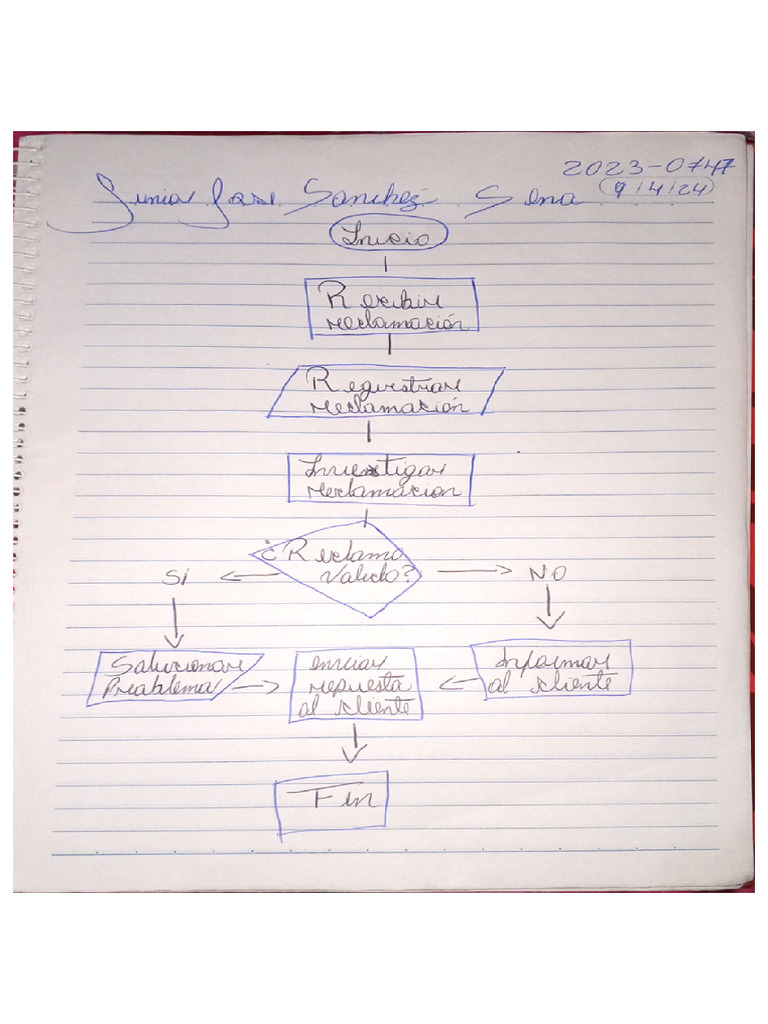 2023-0747
Junior Jose Sanchez Sena (9/4/24)
Inicio
Recibir
reclamación
Registrar
reclamación
Investigar
reclamacion
¿Reclamo
Valido?
SÍ
NO
Solucionar
Problema
enviar
repuesta
al cliente
Informar
al cliente
Fin